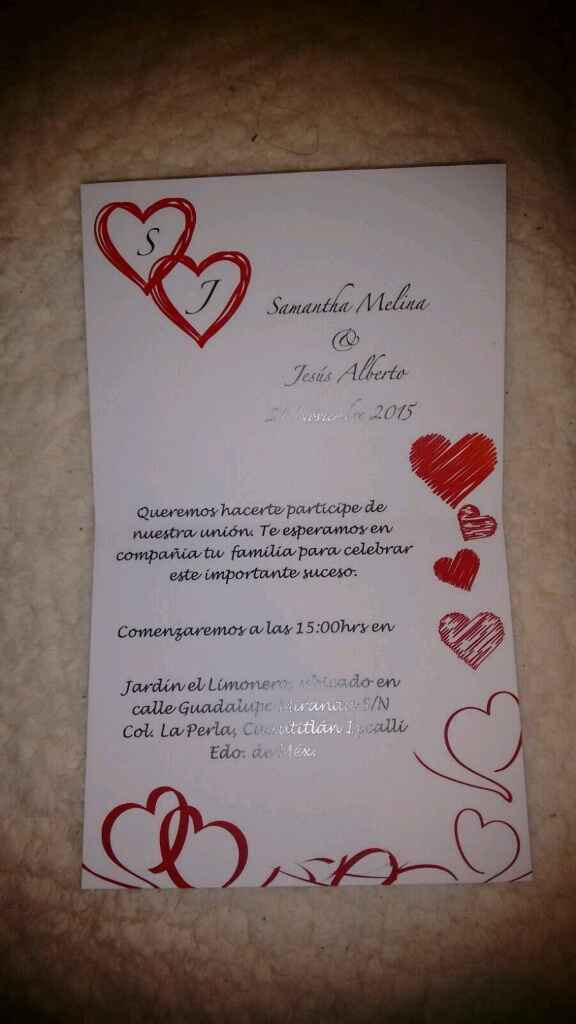 S
J
Samantha Melina
&
Jesús Alberto
Noviembre 2015
Queremos hacerte partícipe de
nuestra unión. Te esperamos en
compañia tu familia para celebrar
este importante suceso.
Comenzaremos a las 15:00hrs en
Jardín el Limonero, ubicado en
calle Guadalupe Miranda S/N
Col. La Perla, Cuautitlán Izcalli
Edo. de Méx.